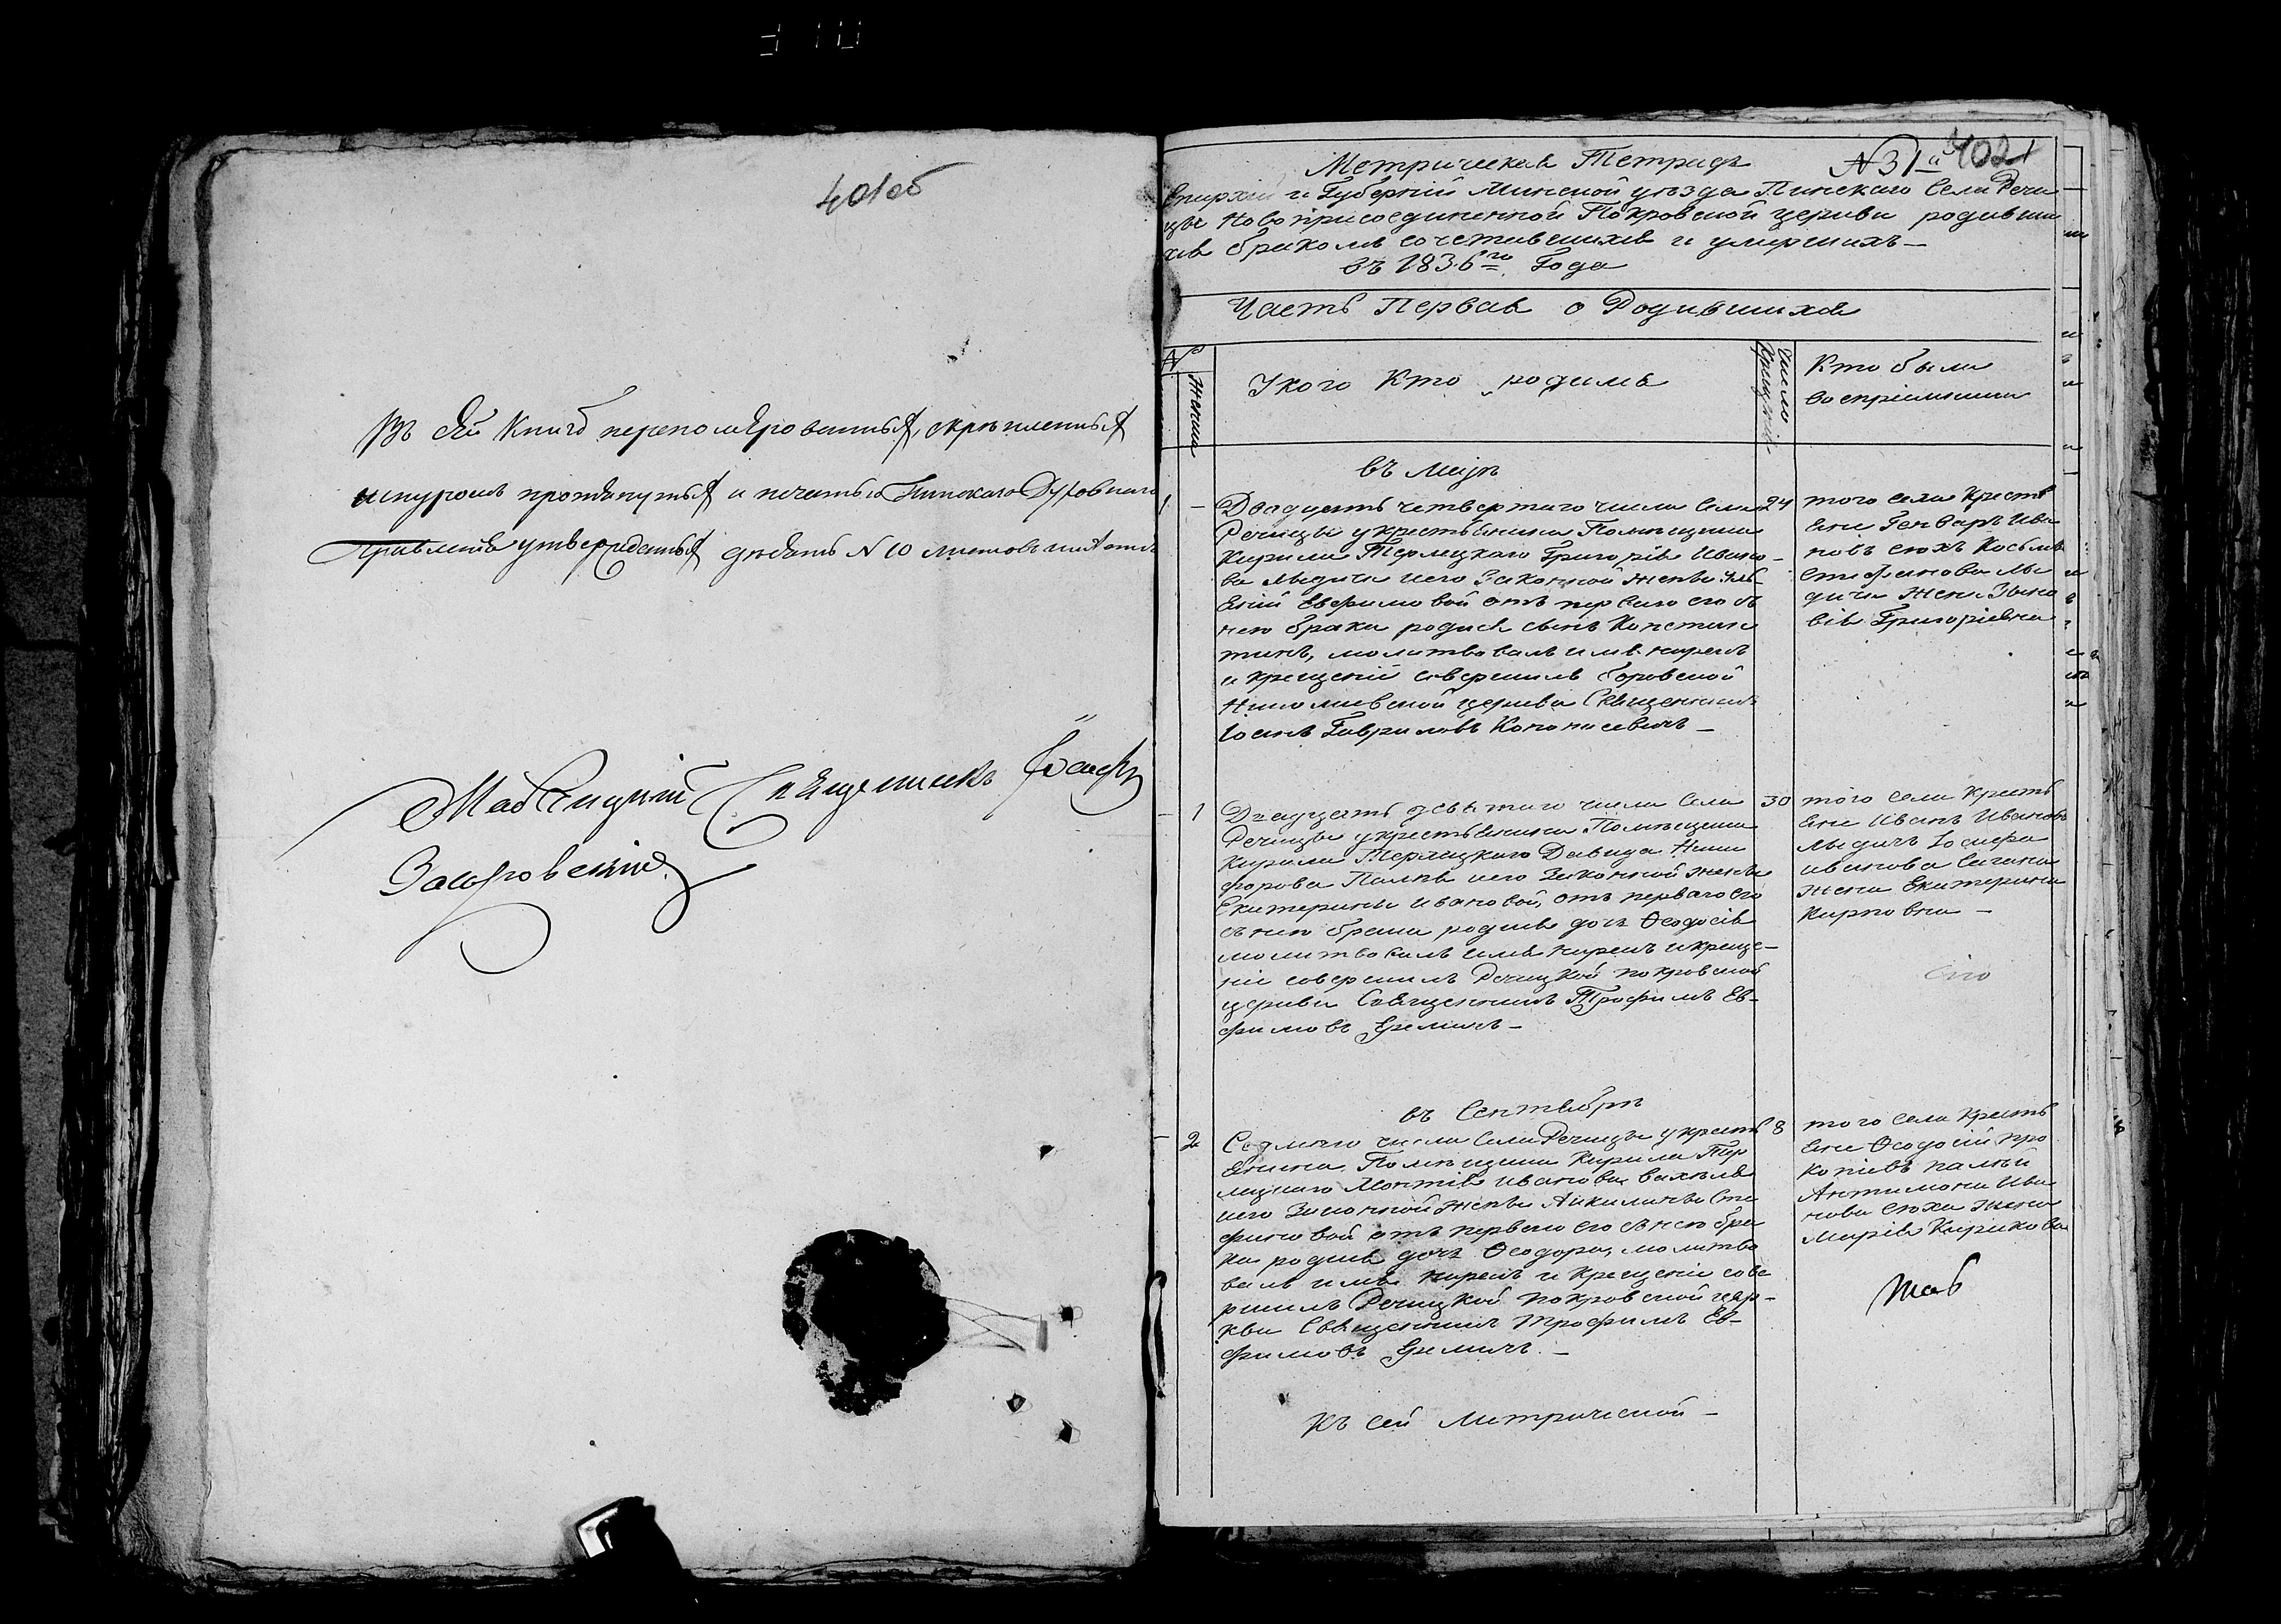 401об
Въ сей Книгѣ перенумерованныя, скрѣпленныя
шнуромъ протянутыя и печатью Пинскаго Духовнаго
Правленія утвержденныя десять N 10 листовъ
Священникъ Іосифъ
N 31й 402
Метрическая Тетрадь
Епархіи и Губерніи Минской уезда Пинскаго Села Речи
цы Новоприсоединенной Покровской церкви родивши
хся бракомъ сочетавшихся и умершихъ –
въ 1836го Года
Часть Первая о Родившихся
N
Женска
У кого Кто родилъ
Число Крещенія
Кто были
воспріемники
въ Маіи
1 – Двадцять четвертаго числа Села
Речицы у крестьянина Помещика
Кирила Терлецкаго Григорія Ивано-
ва его Законной жены
Евфимовой отъ перваго его съ
нею брака родися сынъ Констан
тинъ, молитвовалъ имя нарекъ
и крещеніе совершилъ Боровской
Николаевской церкви Священникъ
Іоанъ Гавриловъ Кононасевичъ –
24
того села крестья
яне Генваръ Ива
новъ сюхъ Косьмы
Стефанова лы
дича жена
Григоріевна
– 1 Двадцять девятаго числа Села
Речицы у крестьянина Помещика
Кирила Терлецкаго Давида Ники
форова его Законной жены
Екатерины Ивановой, отъ перваго его
съ нею брака родися дочь Феодосія
молитвовалъ имя нарекъ и креще-
ніе совершилъ Речицкой покровской
церкви Священникъ Трофимъ Ев-
фимовъ Еремичъ –
30
того села кресть
яне Иванъ Ивановъ
лыдичъ Іосифа
иванова
жена Екатерина
Карповна –
въ Сентябри
– 2 Седмого числа Села Речицы у кресть
янина Помещика Кирила Тер
лецкаго Ивановa
его Законной жены Акилины Сте
фановой отъ перваго его съ нею бра
ка родися дочь Феодора, молитво
валъ имя нарекъ и Крещеніе сове
ршилъ Речицкой покровской цер-
кви Священникъ Трофимъ Ев-
фимовъ Еремичъ –
8
того села крестья
яне Феодосій про
копіевъ
Антимона Ива
нова сюха жена
Марія Кирикова
Къ сей Метрической –